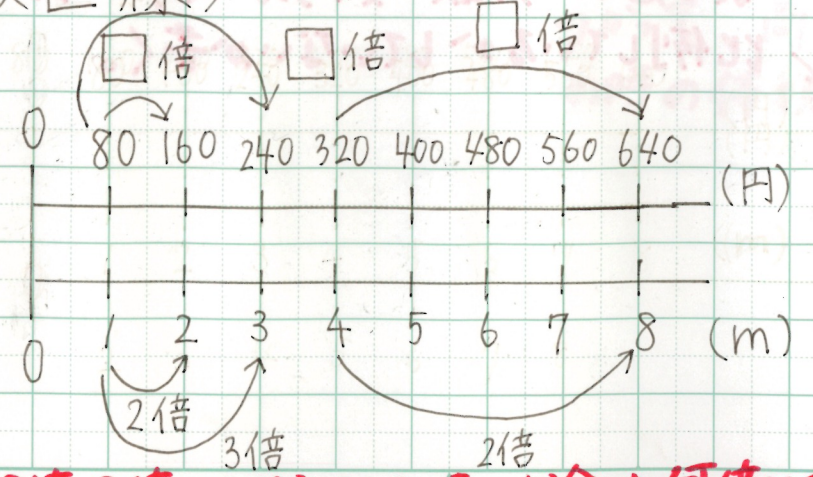 □倍 □倍 □倍
0 80 160 240 320 400 480 560 640 (円)
0 1 2 3 4 5 6 7 8 (m)
2倍 3倍 2倍